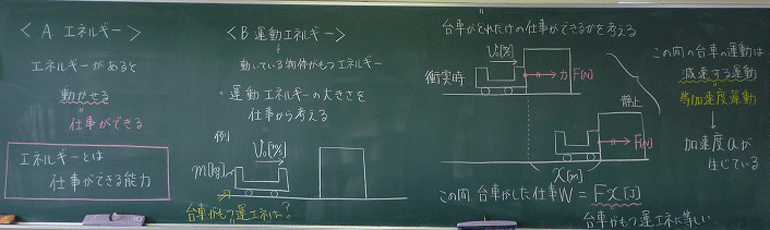 <A エネルギー>
エネルギーがあると
動かせる
仕事ができる
エネルギーとは
仕事ができる能力
<B 運動エネルギー>
動いている物体がもつエネルギー
・運動エネルギーの大きさを
仕事から考える
例
V₀[m/s]
m[kg]
台車がもつ運エネは?
台車がどれだけの仕事ができるかを考える
V₀[m/s]
衝突時
力 F[N]
静止
F[N]
x[m]
この間、台車がした仕事W = Fx[J]
台車がもつ運エネに等しい
この間の台車の運動は
減速する運動
等加速度運動
↓
加速度aが
生じている